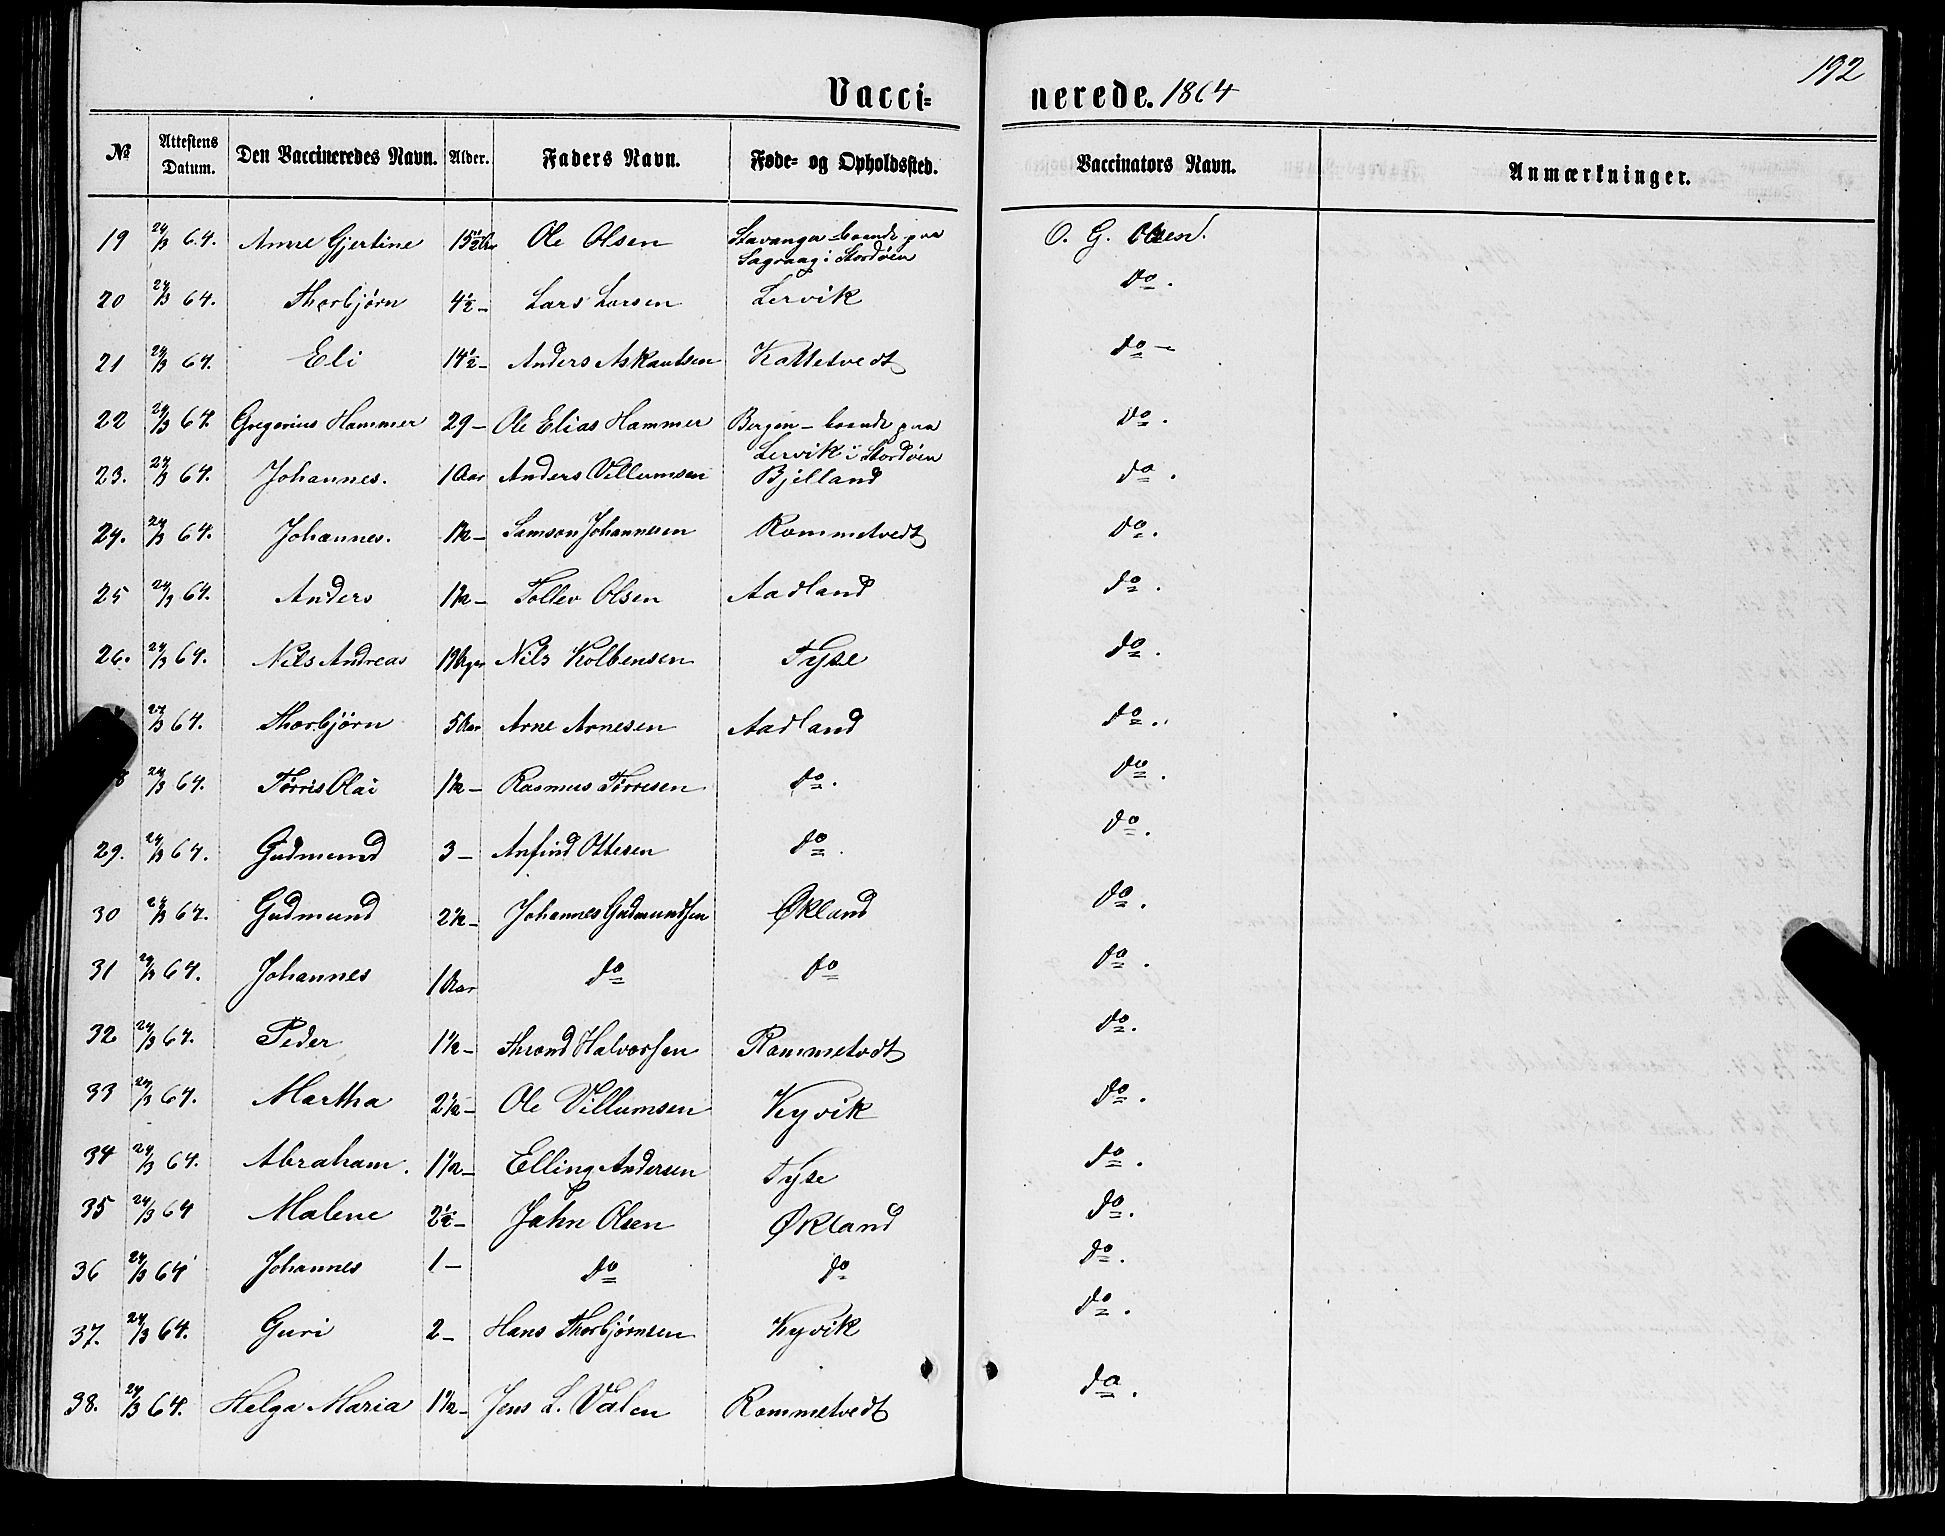 192
Vacci= nerede. 1864
№ | Attestens Datum. | Den Vaccineredes Navn. | Alder. | Faders Navn. | Føde= og Opholdssted. | Vaccinators Navn. | Anmærkninger.
19 | 24/3 64. | Anne Gjertine | 15½ Aar | Ole Olsen | Stavanger boende paa Sagvaag i Stordøen | O. G. Olsen.
20 | 24/3 64. | Thorbjørn | 4½ – | Lars Larsen | Lervik | do.
21 | 24/3 64. | Eli | 14½ – | Anders Askautsen | Kattetvedt | do –
22 | 24/3 64. | Gregorius Hammer | 29 – | Ole Elias Hammer | Bergen – boende paa Lervik i Stordøen | do.
23. | 24/3 64. | Johannes. | 1 Aar | Anders Villumsen | Bjelland | do.
24. | 24/3 64. | Johannes. | 1½ – | Samson Johannesen | Rommetvedt | do.
25 | 24/3 64. | Anders | 1½ – | Tollev Olsen | Aadland | do.
26. | 24/3 64. | Nils Andreas | 19 | Nils Kolbensen | Tyse | do.
24/3 64. | Thorbjørn | 5 Aar | Arne Arnesen | Aadland | do.
8 | 24/3 64. | Tørris Olai | 1½ – | Rasmus Tørresen | do. | do.
29. | 24/3 64. | Gudmund | 3 – | Anfind Ottesen | do. | do.
30 | 24/3 64. | Gudmund | 2½ – | Johannes Gudmundsen | Økland | do.
31 | 24/3 64. | Johannes | 1 Aar | do | do | do.
32 | 24/3 64. | Peder | 1½ – | Thrond Halvorsen | Rommetvdt | do.
33 | 24/3 64. | Martha | 2½ – | Ole Villumsen | Kyvik | do.
34 | 24/3 64. | Abraham. | 1½ – | Elling Andersen | Tyse | do.
35 | 24/3 64 | Malene | 2½ – | Jahn Olsen | Økland | do.
36 | 24/3 64 | Johannes | 1 – | do | do | do.
37. | 24/3 64. | Guri | 2 – | Hans Thorbjørnsen | Kyvik | do.
38. | 24/3 64. | Helga Maria | 1½ – | Jens L. Valen | Rommetvedt | do.